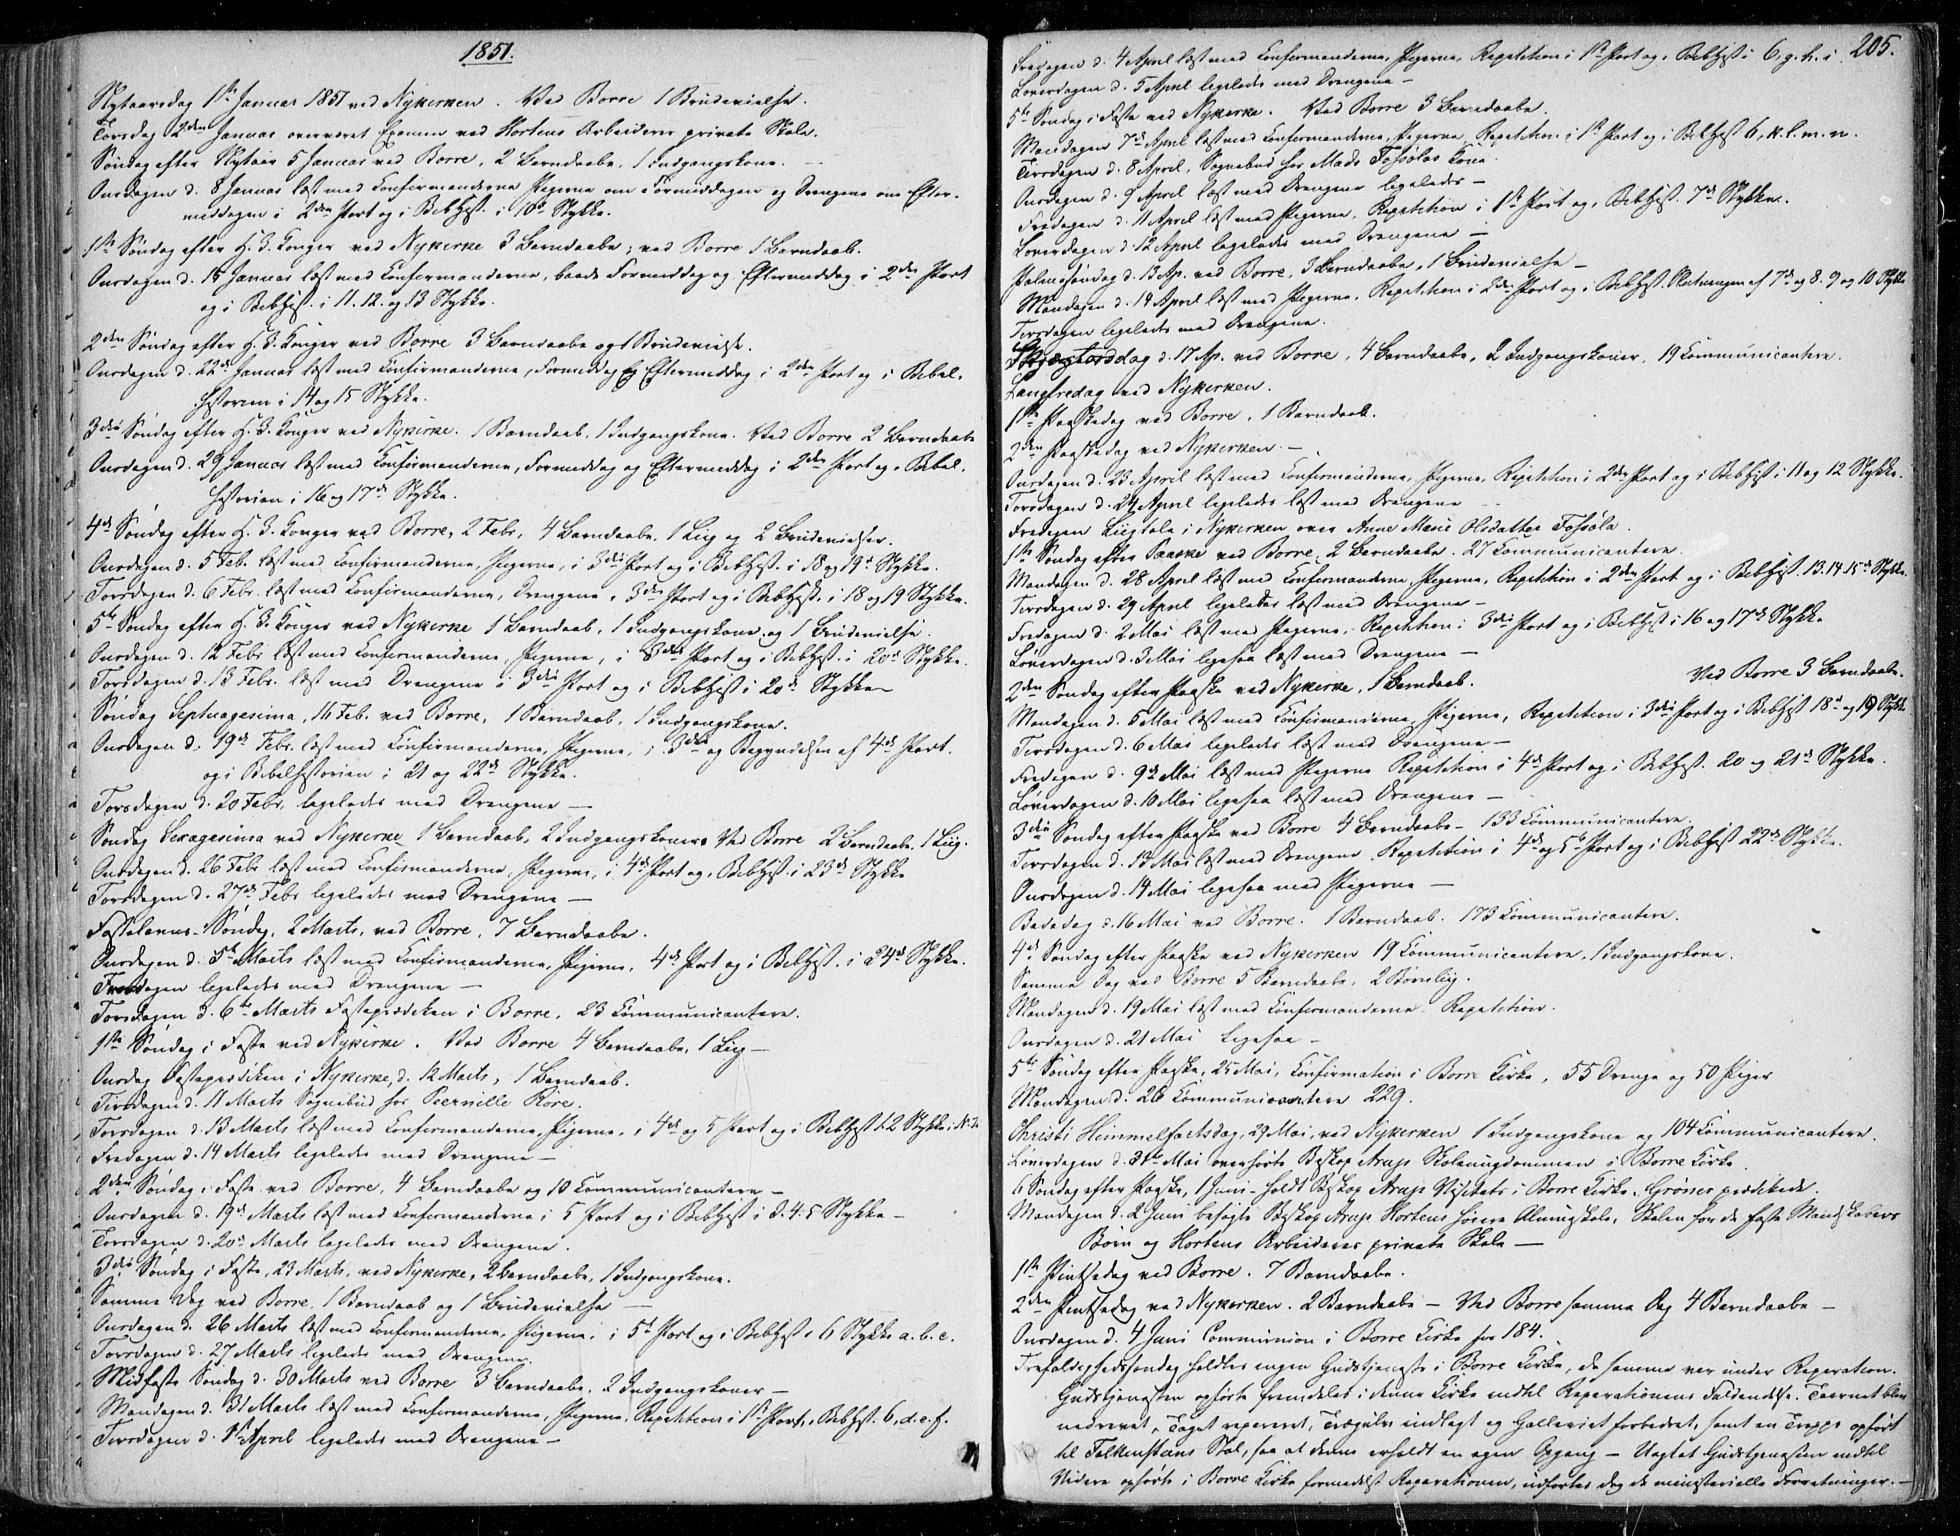 1851.
Nytaarsdag 1ste Januar 1851 ved Nykirken. Ved Borre 1 Brudevielse.
Torsdag 2den Januar overværet Examen ved Hortens Arbeideres private Skole.
Søndag efter Nytaar 5 Januar ved Borre, 2 Barndaabe, 1 Indgangskone. —
Onsdagen d. 8 Januar læst med Confirmanderne Pigerne om Formiddagen og Drengene om Efter-
middagen i 2den Part og i Bibelhist. i 10de Stykke.
1ste Søndag efter H. 3. Konger ved Nykirke 3 Barndaabe; ved Borre 1 Barndaab.
Onsdagen d. 15 Januar læst med Confirmanderne, baade Formiddag og Eftermiddag i 2den Part
og i Bibelhist. i 11. 12. og 13 Stykke.
2den Søndag efter H. 3. Konger ved Borre 3 Barndaabe og 1 Brudevielse.
Onsdagen d. 22de Januar læst med Confirmanderne, Formiddag og Eftermiddag i 2den Part og i Bibel-
historien i 14 og 15 Stykke.
3die Søndag efter H. 3. Konger ved Nykirke. 1 Barndaab, 1 Indgangskone. Ved Borre 2 Barndaabe
Onsdagen d. 29 Januar læst med Confirmanderne, Formiddag og Eftermiddag i 2den Part og i Bibel-
historien i 16 og 17de Stykke.
4de Søndag efter H. 3. Konger ved Borre, 2 Febr. 4 Barndaabe, 1 Liig og 2 Brudevielser.
Onsdagen d. 5 Feb. læst med Confirmanderne, Pigerne, i 3die Part og i Bibelhist. i 18 og 19de Stykke.
Torsdagen d. 6 Febr. læst med Confirmanderne, Drengene, 3die Part og i Bibelhist. i 18 og 19 Stykke.
5te Søndag efter H. 3. Konger ved Nykirke 1 Barndaab, 1 Indgangskone og 1 Brudevielse.
Onsdagen d. 12 Febr. læst med Confirmanderne, Pigerne, i 3die Part og i Bibelhist. i 20de Stykke.
Torsdagen d. 13 Febr. læst med Drengene i 3die Part og i Bibelhist i 20de Stykke
Søndag Septuagesima, 16 Feb. ved Borre, 1 Barndaab, 1 Indgangskone.
Onsdagen d. 19de Febr. læst med Confirmanderne, Pigerne, i 3die og Begyndelsen af 4de Part.
og i Bibelhistorien i 21 og 22de Stykke.
Torsdagen d. 20 Febr. ligeledes med Drengene —
Søndag Sexagesima ved Nykirke 1 Barndaab, 2 Indgangskoner. Ved Borre 2 Barndaabe, 1 Liig.
Onsdagen d. 26 Febr læst med Confirmanderne, Pigerne, i 4de Part og i Bibelhist. i 23de Stykke
Torsdagen d. 27de Febr ligeledes med Drengene —
Fastelavns-Søndag, 2 Marts, ved Borre, 7 Barndaabe.
Onsdagen d. 5te Marts læst med Confirmanderne, Pigerne, 4de Part og i Bibelhist. i 24de Stykke.
Fredagen ligeledes med Drengene —
Torsdagen d. 6te Marts Fasteprædiken i Borre, 23 Communicantere.
1ste Søndag i Faste ved Nykirke. Ved Borre 4 Barndaabe, 1 Liig —
Onsdag Fasteprædiken i Nykirke, d. 12 Marts, 1 Barndaab.
Tirsdagen d. 11 Marts Sognebud for Peernille Röre.
Torsdagen d. 13 Marts læst med Confirmanderne, Pigerne, i 4de og 5 Part og i Bibelhist. 1. 2 Stykke i N. T.
Fredagen d. 14 Marts ligeledes med Drengene —
2den Søndag i Faste ved Borre, 4 Barndaabe og 10 Communicantere —
Onsdagen d. 19de Marts læst med Confirmanderne i 5 Part og i Bibelhist i 3. 4. 5 Stykke —
Torsdagen d. 20de Marts ligeledes med Drengene.
3die Søndag i Faste, 23 Marts, ved Nykirke, 2 Barndaabe, 1 Indgangskone.
Samme Dag ved Borre, 1 Barndaab og 1 Brudevielse —
Onsdagen d. 26 Marts læst med Confirmanderne, Pigerne, i 5te Part og i Bibelhist. 6 Stykke a. b. c.
Torsdagen d. 27 Marts ligeledes med Drengene.
Midfaste Søndag d. 30 Marts ved Borre 3 Barndaabe, 2 Indgangskoner —
Mandagen d. 31 Marts læst med Confirmanderne, Pigerne, Repetition i 1ste Part, Bibelhist. 6. d. e. f.
Tirsdagen d. 1ste April ligeledes med Drengene —
205.
Fredagen d. 4 April læst med Confirmanderne, Pigerne, Repetition i 1ste Part og Bibelhist i 6. g. h. i.
Løverdagen d. 5 April ligeledes med Drengene —
5te Søndag i Faste ved Nykirke. Ved Borre 3 Barndaabe.
Mandagen 7de April læst med Confirmanderne, Pigerne, Repetition i 1ste Part og i Bibelhist 6, k. l. m. n.
Tirsdagen d. 8 April, Sognebud for Mads Fossölas Kone.
Onsdagen d. 9 April læst med Drengene ligeledes —
Fredagen d. 11 April læst med Pigerne, Repetition i 1ste Part og Bibelhist. 7de Stykke.
Løverdagen d. 12 April ligeledes med Drengene —
Palmesøndag d. 13 Ap. ved Borre, 3 Barndaabe, 1 Brudevielse —
Mandagen d. 14 April læst med Pigerne, Repetition i 2den Part og i Bibelhist. Slutningen af 7de og 8. 9 og 10 Stykke
Tirsdagen ligeledes med Drengene.
Skjærtorsdag d. 17 Ap. ved Borre, 4 Barndaabe, 2 Indgangskoner, 19 Communicantere.
Langfredag ved Nykirken.
1ste Paaskedag ved Borre, 1 Barndaab.
2den Paaskedag ved Nykirken. —
Onsdagen d. 23 April læst med Confirmanderne, Pigerne, Repetition i 2den Part og i Bibelhist i 11 og 12 Stykke.
Torsdagen d. 24 April ligeledes læst med Drengene
Fredagen Liigtale i Nykirken over Anne Marie Olsdatter Fossöla.
1ste Søndag efter Paaske ved Borre, 2 Barndaabe. 27 Communicantere.
Mandagen d. 28 April læst med Confirmanderne, Pigerne, Repetition i 2den Part og i Bibelhist. 13. 14. 15de Stykke.
Tirsdagen d. 29 April ligeledes læst med Drengene —
Fredagen d. 2 Mai læst med Pigerne, Repetition i 3die Part og i Bibelhist i 16 og 17de Stykke
Løverdagen d. 3 Mai ligesaa læst med Drengene —
2den Søndag efter Paaske ved Nykirke, 1 Barndaab. Ved Borre 3 Barndaabe.
Mandagen d. 5 Mai læst med Confirmanderne, Pigerne, Repetition i 3die Part og i Bibelhist 18de og 19 Stykke
Tirsdagen d. 6 Mai ligeledes læst med Drengene —
Fredagen d. 9de Mai læst med Pigerne Repetition i 4de Part og i Bibelhist. 20 og 21de Stykke.
Løverdagen d. 10 Mai ligesaa læst med Drengene —
3die Søndag efter Paaske ved Borre 4 Barndaabe — 133 Communicantere.
Tirsdagen d. 13 Mai læst med Drengene Repetition i 4de og 5te Part og i Bibelhist 22de Stykke.
Onsdagen d. 14 Mai ligesaa med Pigerne —
Bededag d. 16 Mai ved Borre. 1 Barndaab. 173 Communicantere.
4de Søndag efter Paaske ved Nykirken 19 Communicantere, 1 Indgangskone.
Samme Dag ved Borre 5 Barndaabe, 2 Børnelig.
Mandagen d. 19 Mai læst med Confirmanderne Repetition.
Onsdagen d. 21 Mai ligesaa —
5te Søndag efter Paaske, 25 Mai, Confirmation i Borre Kirke, 55 Drenge og 50 Piger
Mandagen d. 26 Communicantere 229.
Christi Himmelfartsdag, 29 Mai, ved Nykirken 1 Indgangskone og 104 Communicantere.
Løverdagen d. 31te Mai overhørte Biskop Arup Skoleungdommen i Borre Kirke.
6 Søndag efter Paaske, 1 Juni, holdt Biskop Arup Visitats i Borre Kirke. Gröner prædikede.
Mandagen d. 2 Juni besøgte Biskop Arup Hortens høiere Almueskole, Skolen for de faste Mandskabers
Børn og Hortens Arbeideres private Skole —
1ste Pintsedag ved Borre. 7 Barndaabe.
2den Pintsedag ved Nykirken. 2 Barndaabe — Ved Borre samme Dag 4 Barndaabe —
Onsdagen d. 4 Juni Communion i Borre Kirke for 184.
Trefoldighedssøndag holdtes ingen Gudstjeneste i Borre Kirke, da samme var under Reperation.
Gudstjenesten ophørte fremdeles i denne Kirke indtil Reperationens Fuldendelse. Taarnet blev
nedrevet, Taget repereret, Trægulv indlagt og Galleriet forbedret, samt en Trappe opført
til Falkensteens Stol, saa at denne erholdt en egen Opgang — Uagtet Gudstjenesten indtil
Videre ophørte i Borre Kirke formedelst Reperationen, udførtes dog de ministerielle Forretninger. —